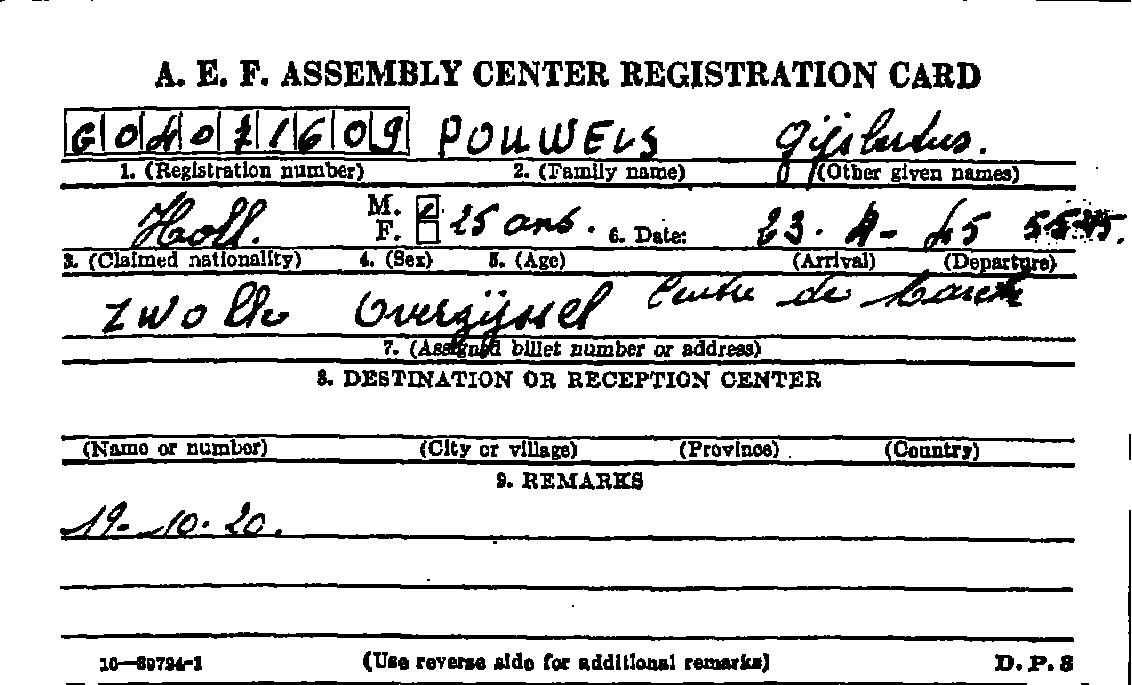 A. E. F. ASSEMBLY CENTER REGISTRATION CARD
G04071609 POUWELS Gijsbertus.
1. (Registration number) 2. (Family name) (Other given names)
Holl. M. F. 25 ans. 6. Date: 23-4-45
3. (Claimed nationality) 4. (Sex) 5. (Age) (Arrival) (Departure)
Zwolle Overijssel Centre de
7. (Assigned billet number or address)
8. DESTINATION OR RECEPTION CENTER
(Name or number) (City or village) (Province) (Country)
9. REMARKS
19-10-20.
10—89794-1 (Use reverse side for additional remarks) D. P. 8